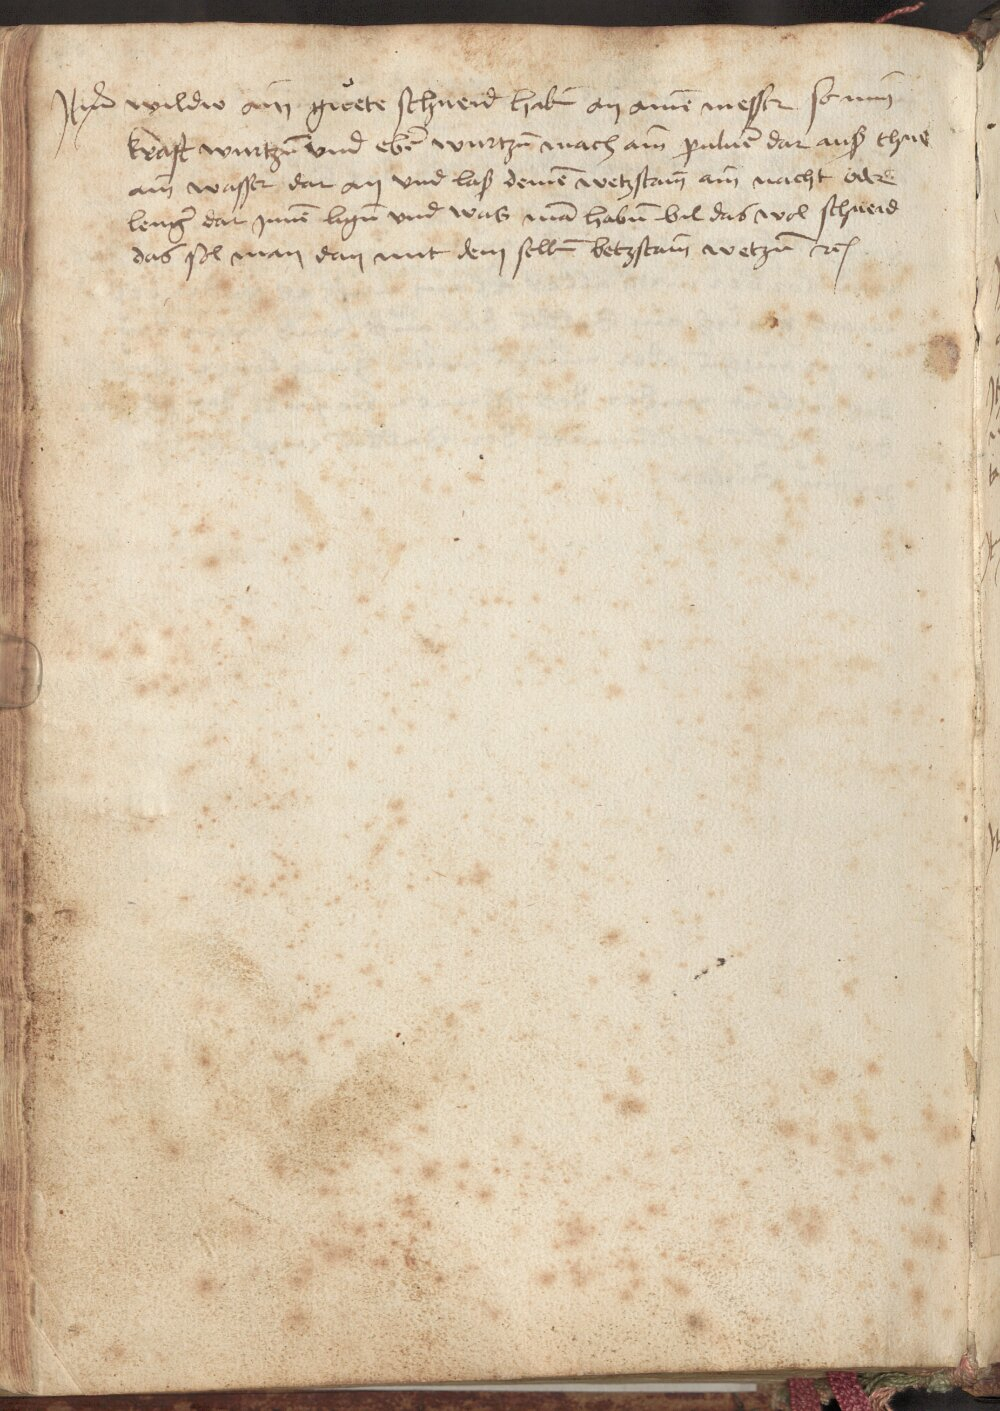 Itm̄ wildw ain guͦete schneid habn̄ an aine͂ messer so nim̄
kraft wurtzn̄ vnd ebe͂ wurtzn̄ mach ain̄ puluē dar auß thue
ain̄ wasser dar an vnd laß deine͂ wetzstain̄ ain̄ nacht oder
lenger dar jnne͂ lign̄ vnd was ma͂ habn̄ bil das wol schneid
das sol man dan mit dem selbn̄ betzstain̄ wetzn̄ rc